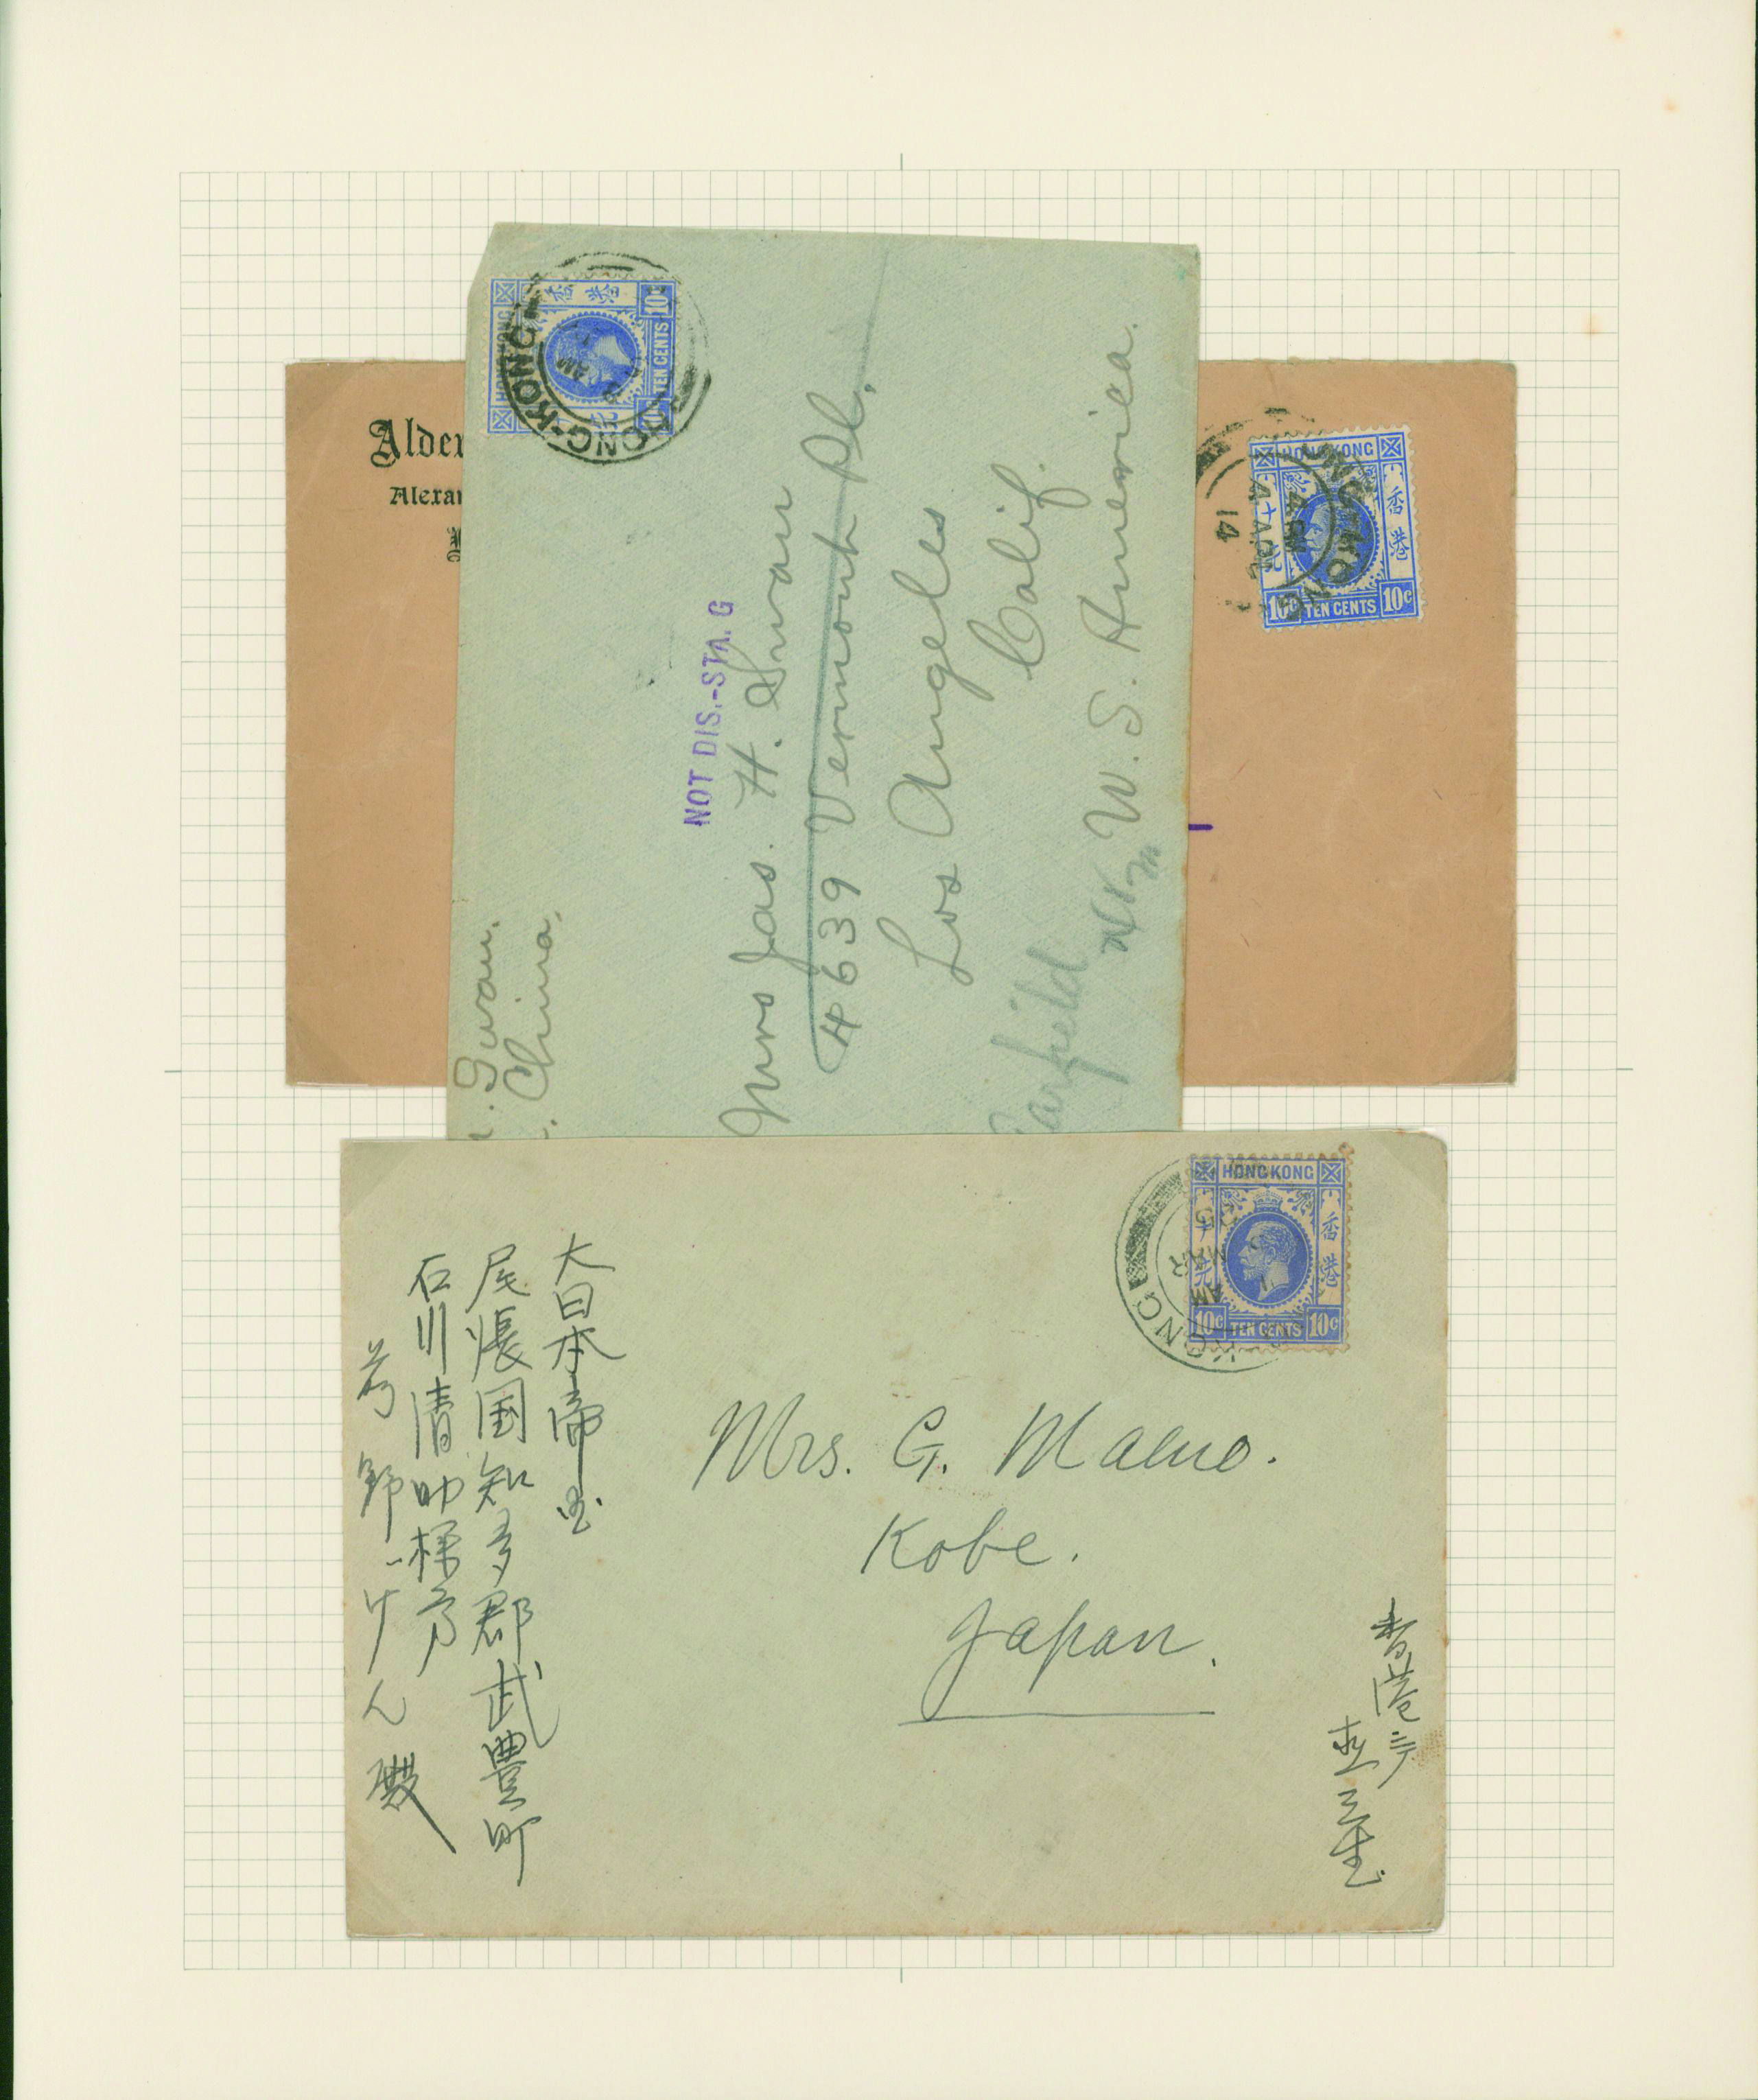 Alder
Alexan
HONG KONG
香港
10c TEN CENTS 10c
HONG-KONG
AM
NOT DIS.-STA. G
Mrs Jas. H. Swan
4639 Vermont Pl.
Los Angeles
Calif.
U. S. America.
Garfield
N.M.
Swan.
China.
HONG KONG
香港
10c TEN CENTS 10c
HONG KONG
4 PM
4 AP
14
HONG KONG
香港
10c TEN CENTS 10c
KONG
AM
MAR
Mrs. G. Maeno.
Kobe.
Japan.
大日本帝国
尾張国知多郡武豊町
石川清助様方
前野げん殿
香港